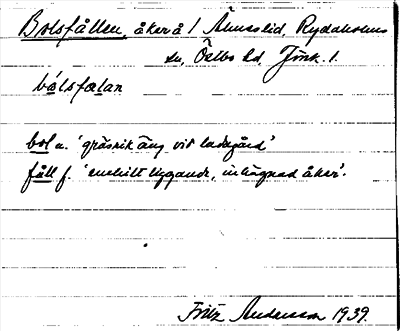 Bolsfållen, åker å 1 Älmaslid, Rydaholms
sn, Östbo hd, Jönk. l.
bólsfælan
bol n. 'gräsrik äng vid ladugård'
fåll f. 'enskilt liggande, inhägnad åker'.
Fritz Andersson 1939.